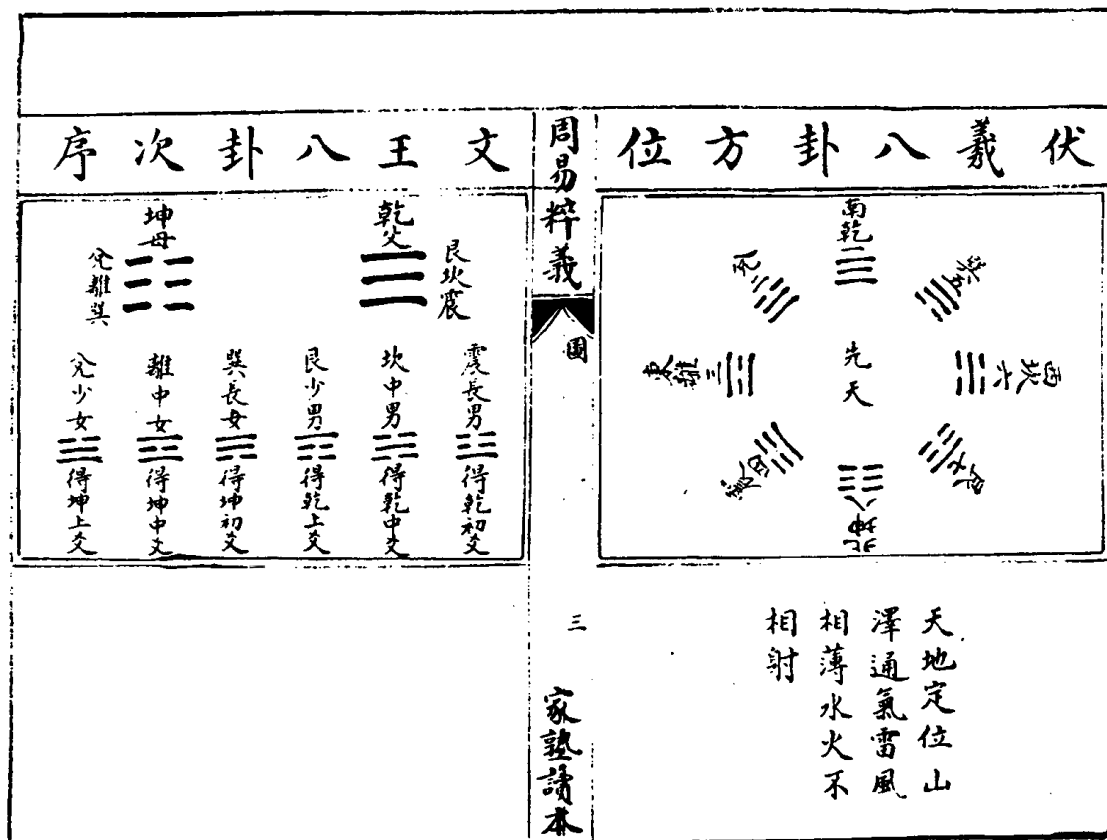 伏羲八卦方位
南乾一
兌二
巽五
東離三
先天
西坎六
震四
艮七
北坤八
天地定位山
澤通氣雷風
相薄水火不
相射
周易粹義
圖
三
家塾讀本
文王八卦次序
艮坎震
乾父
坤母
兌離巽
震長男
得乾初爻
坎中男
得乾中爻
艮少男
得乾上爻
巽長女
得坤初爻
離中女
得坤中爻
兌少女
得坤上爻